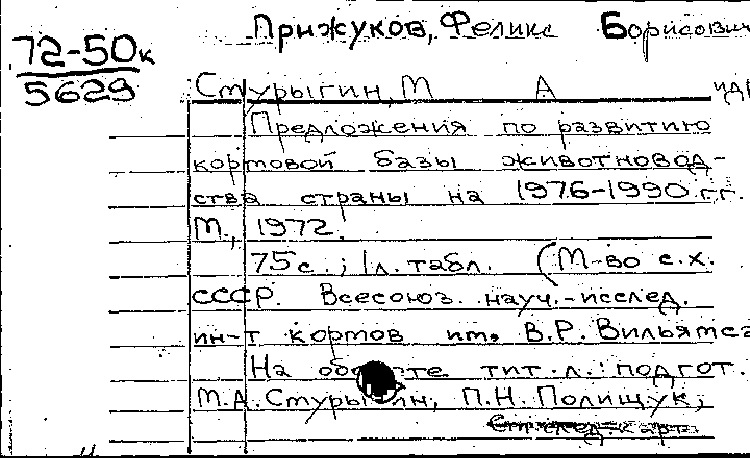 Прижуков, Феликс Борисович
72-50к
5629
Стурыгин, М А и др
Предложения по развитию
кортовой базы животновод-
ства страны на 1976-1990 г.г.
М., 1972.
75 с.; 1 л. табл. (М-во с.х.
СССР. Всесоюз. науч.-исслед.
ин-т кортов им. В.Р. Вильямса
На обороте тит. л.: подгот.
М.А. Стурыгин, П.Н. Полищук,